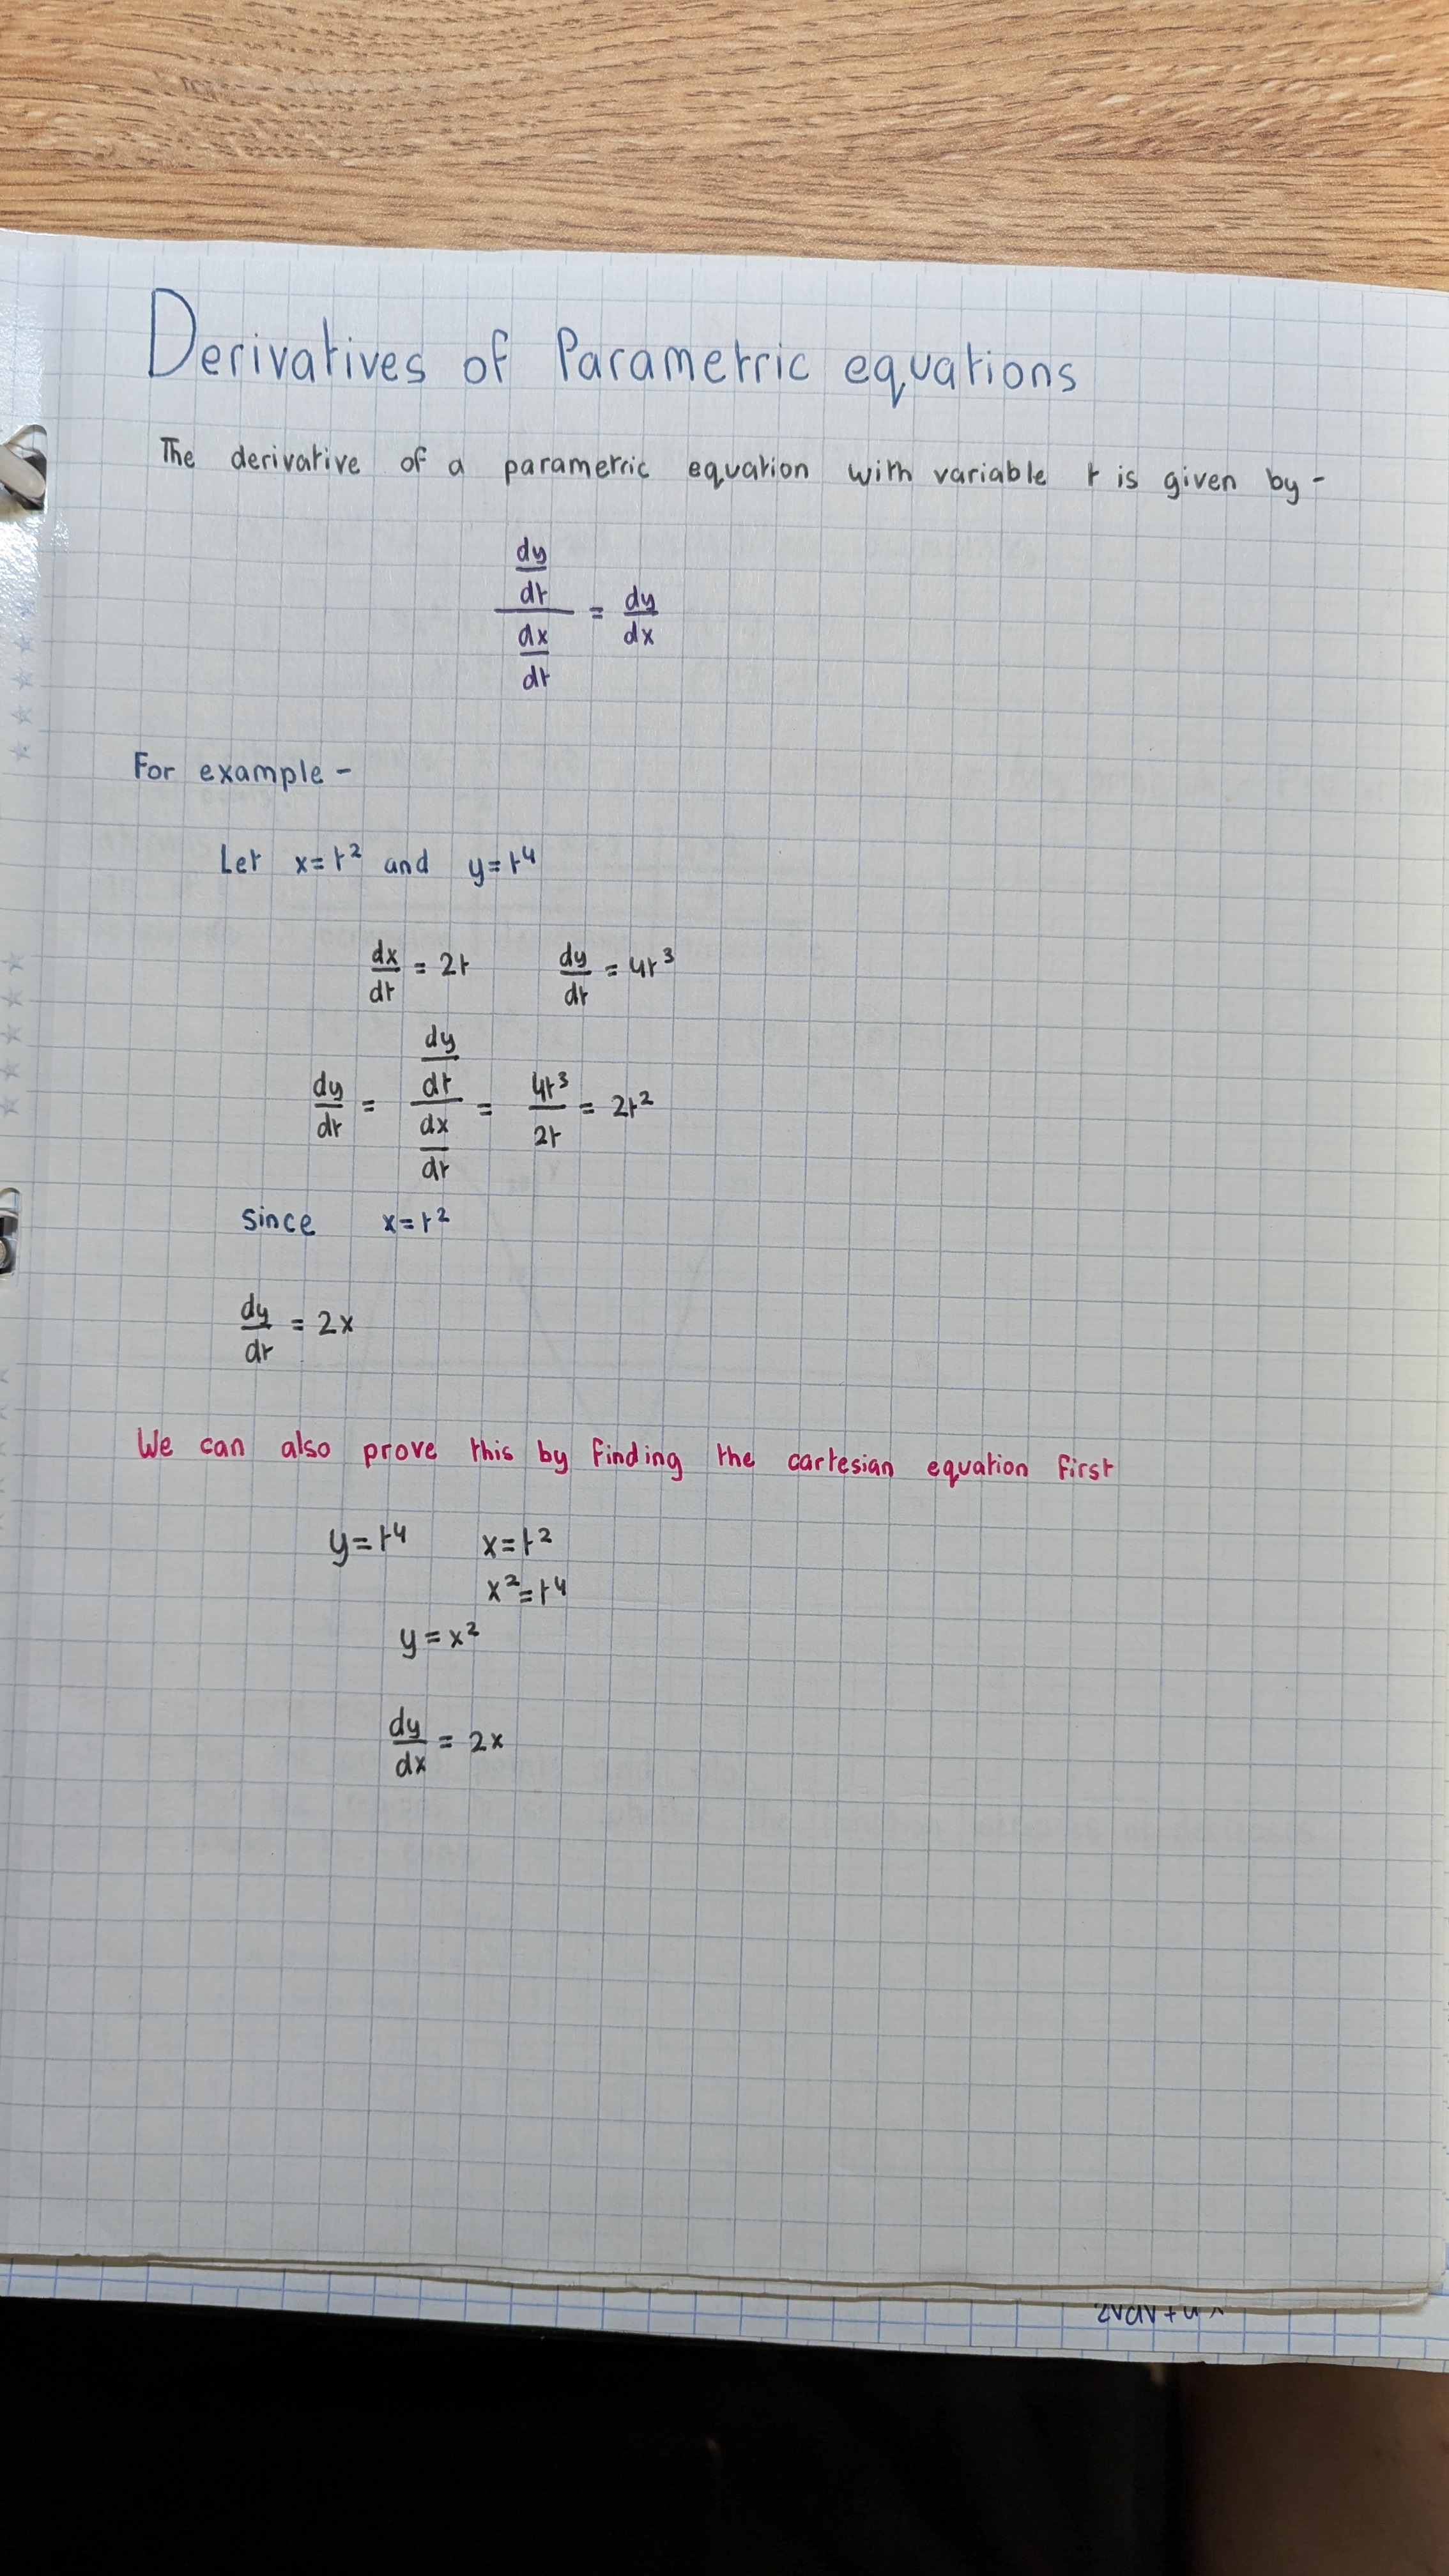 Derivatives of Parametric equations
The derivative of a parametric equation with variable t is given by -
dy/dt / dx/dt = dy/dx
For example -
Let x=t² and y=t⁴
dx/dt = 2t dy/dt = 4t³
dy/dt = dy/dt / dx/dt = 4t³/2t = 2t²
since x=t²
dy/dt = 2x
We can also prove this by finding the cartesian equation first
y=t⁴ x=t²
x²=t⁴
y=x²
dy/dx = 2x